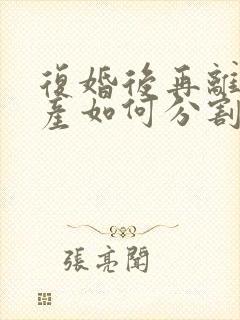 復婚後再離
產如何分割
張亮聞